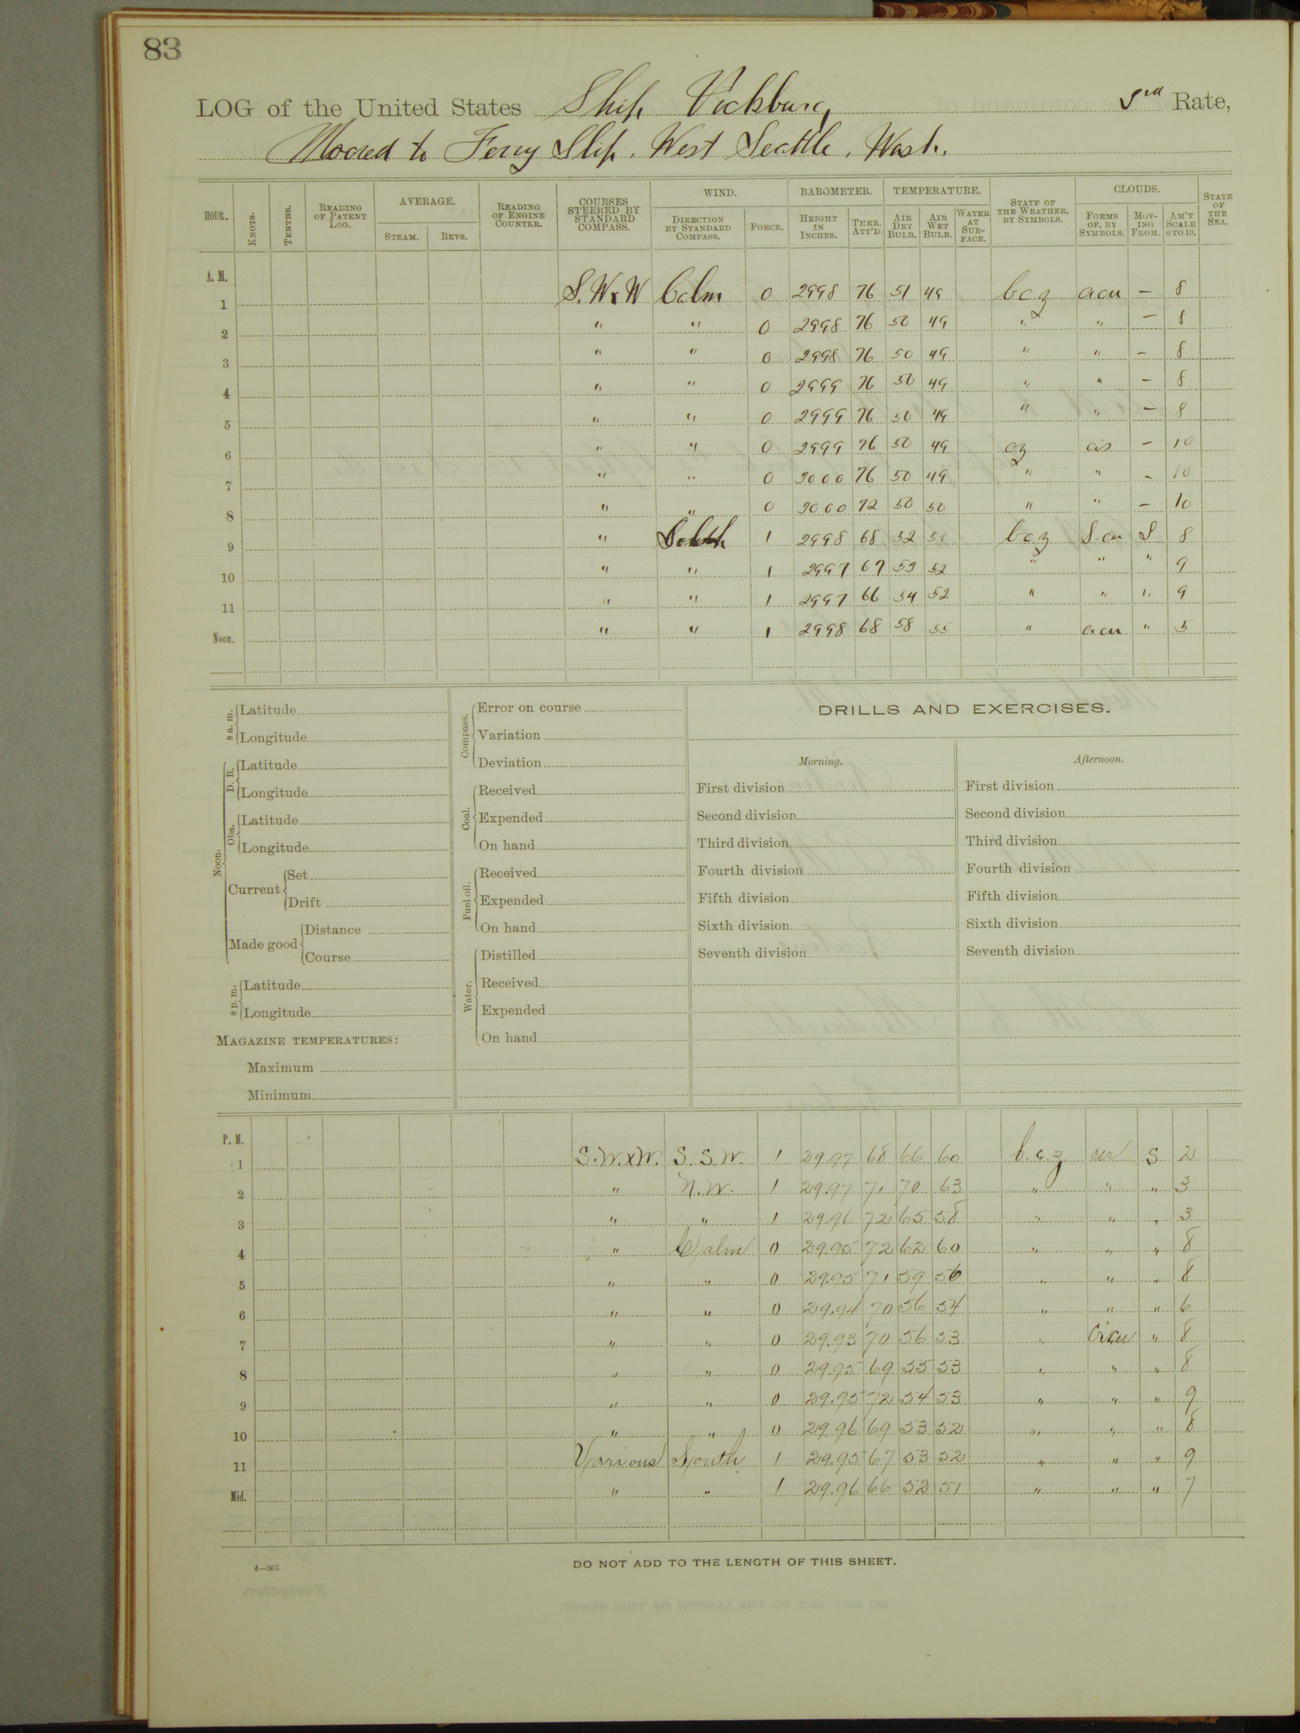 83
LOG of the United States Ship Vicksburg, 3rd Rate,
Moored to Ferry Slip. West Seattle. Wash.
HOUR. KNOTS. TENTHS. READING OF PATENT LOG. AVERAGE. STEAM. REVS. READING OF ENGINE COUNTER. COURSES STEERED BY STANDARD COMPASS. WIND. DIRECTION BY STANDARD COMPASS. FORCE. BAROMETER. HEIGHT IN INCHES. THER. ATT'D. TEMPERATURE. AIR DRY BULB. AIR WET BULB. WATER AT SURFACE. STATE OF THE WEATHER, BY SYMBOLS. CLOUDS. FORMS OF, BY SYMBOLS. MOVING FROM. AM'T SCALE 0 TO 10. STATE OF THE SEA.
A. M.
1 S.WxW Calm 0 2998 76 51 49 bcz acu — 8
2 " " 0 2998 76 50 49 " " — 8
3 " " 0 2998 76 50 49 " " — 8
4 " " 0 2999 76 50 49 " " — 8
5 " " 0 2999 76 50 49 " " — 8
6 " " 0 2999 76 50 49 oz cis — 10
7 " " 0 3000 76 50 49 " " — 10
8 " " 0 3000 72 50 50 " " — 10
9 " South 1 2998 68 52 51 bcz S.cu S 8
10 " " 1 2997 67 53 52 " " " 9
11 " " 1 2997 66 54 52 " " " 9
Noon. " " 1 2998 68 58 55 " acu " 5
8 a. m. Latitude
Longitude
Noon. D. R. Latitude
Longitude
Obs. Latitude
Longitude
Current Set
Drift
Made good Distance
Course
8 p. m. Latitude
Longitude
MAGAZINE TEMPERATURES:
Maximum
Minimum
Compass. Error on course
Variation
Deviation
Coal. Received
Expended
On hand
Fuel oil. Received
Expended
On hand
Water. Distilled
Received
Expended
On hand
DRILLS AND EXERCISES.
Morning.
First division
Second division
Third division
Fourth division
Fifth division
Sixth division
Seventh division
Afternoon.
First division
Second division
Third division
Fourth division
Fifth division
Sixth division
Seventh division
P. M.
1 S.W.xW. S.S.W. 1 29.97 68 66 60 b.c.z cu S 2
2 " N.W. 1 29.97 71 70 63 " " " 3
3 " " 1 29.96 72 65 58 " " " 3
4 " Calm 0 29.95 72 62 60 " " " 8
5 " " 0 29.95 71 59 56 " " " 8
6 " " 0 29.94 70 56 54 " " " 6
7 " " 0 29.93 70 56 53 " cicu " 8
8 " " 0 29.95 69 55 53 " " " 8
9 " " 0 29.95 72 54 53 " " " 9
10 " " 0 29.96 69 53 52 " " " 8
11 Various South 1 29.95 67 53 52 " " " 9
Mid. " " 1 29.96 66 52 51 " " " 7
4—265
DO NOT ADD TO THE LENGTH OF THIS SHEET.